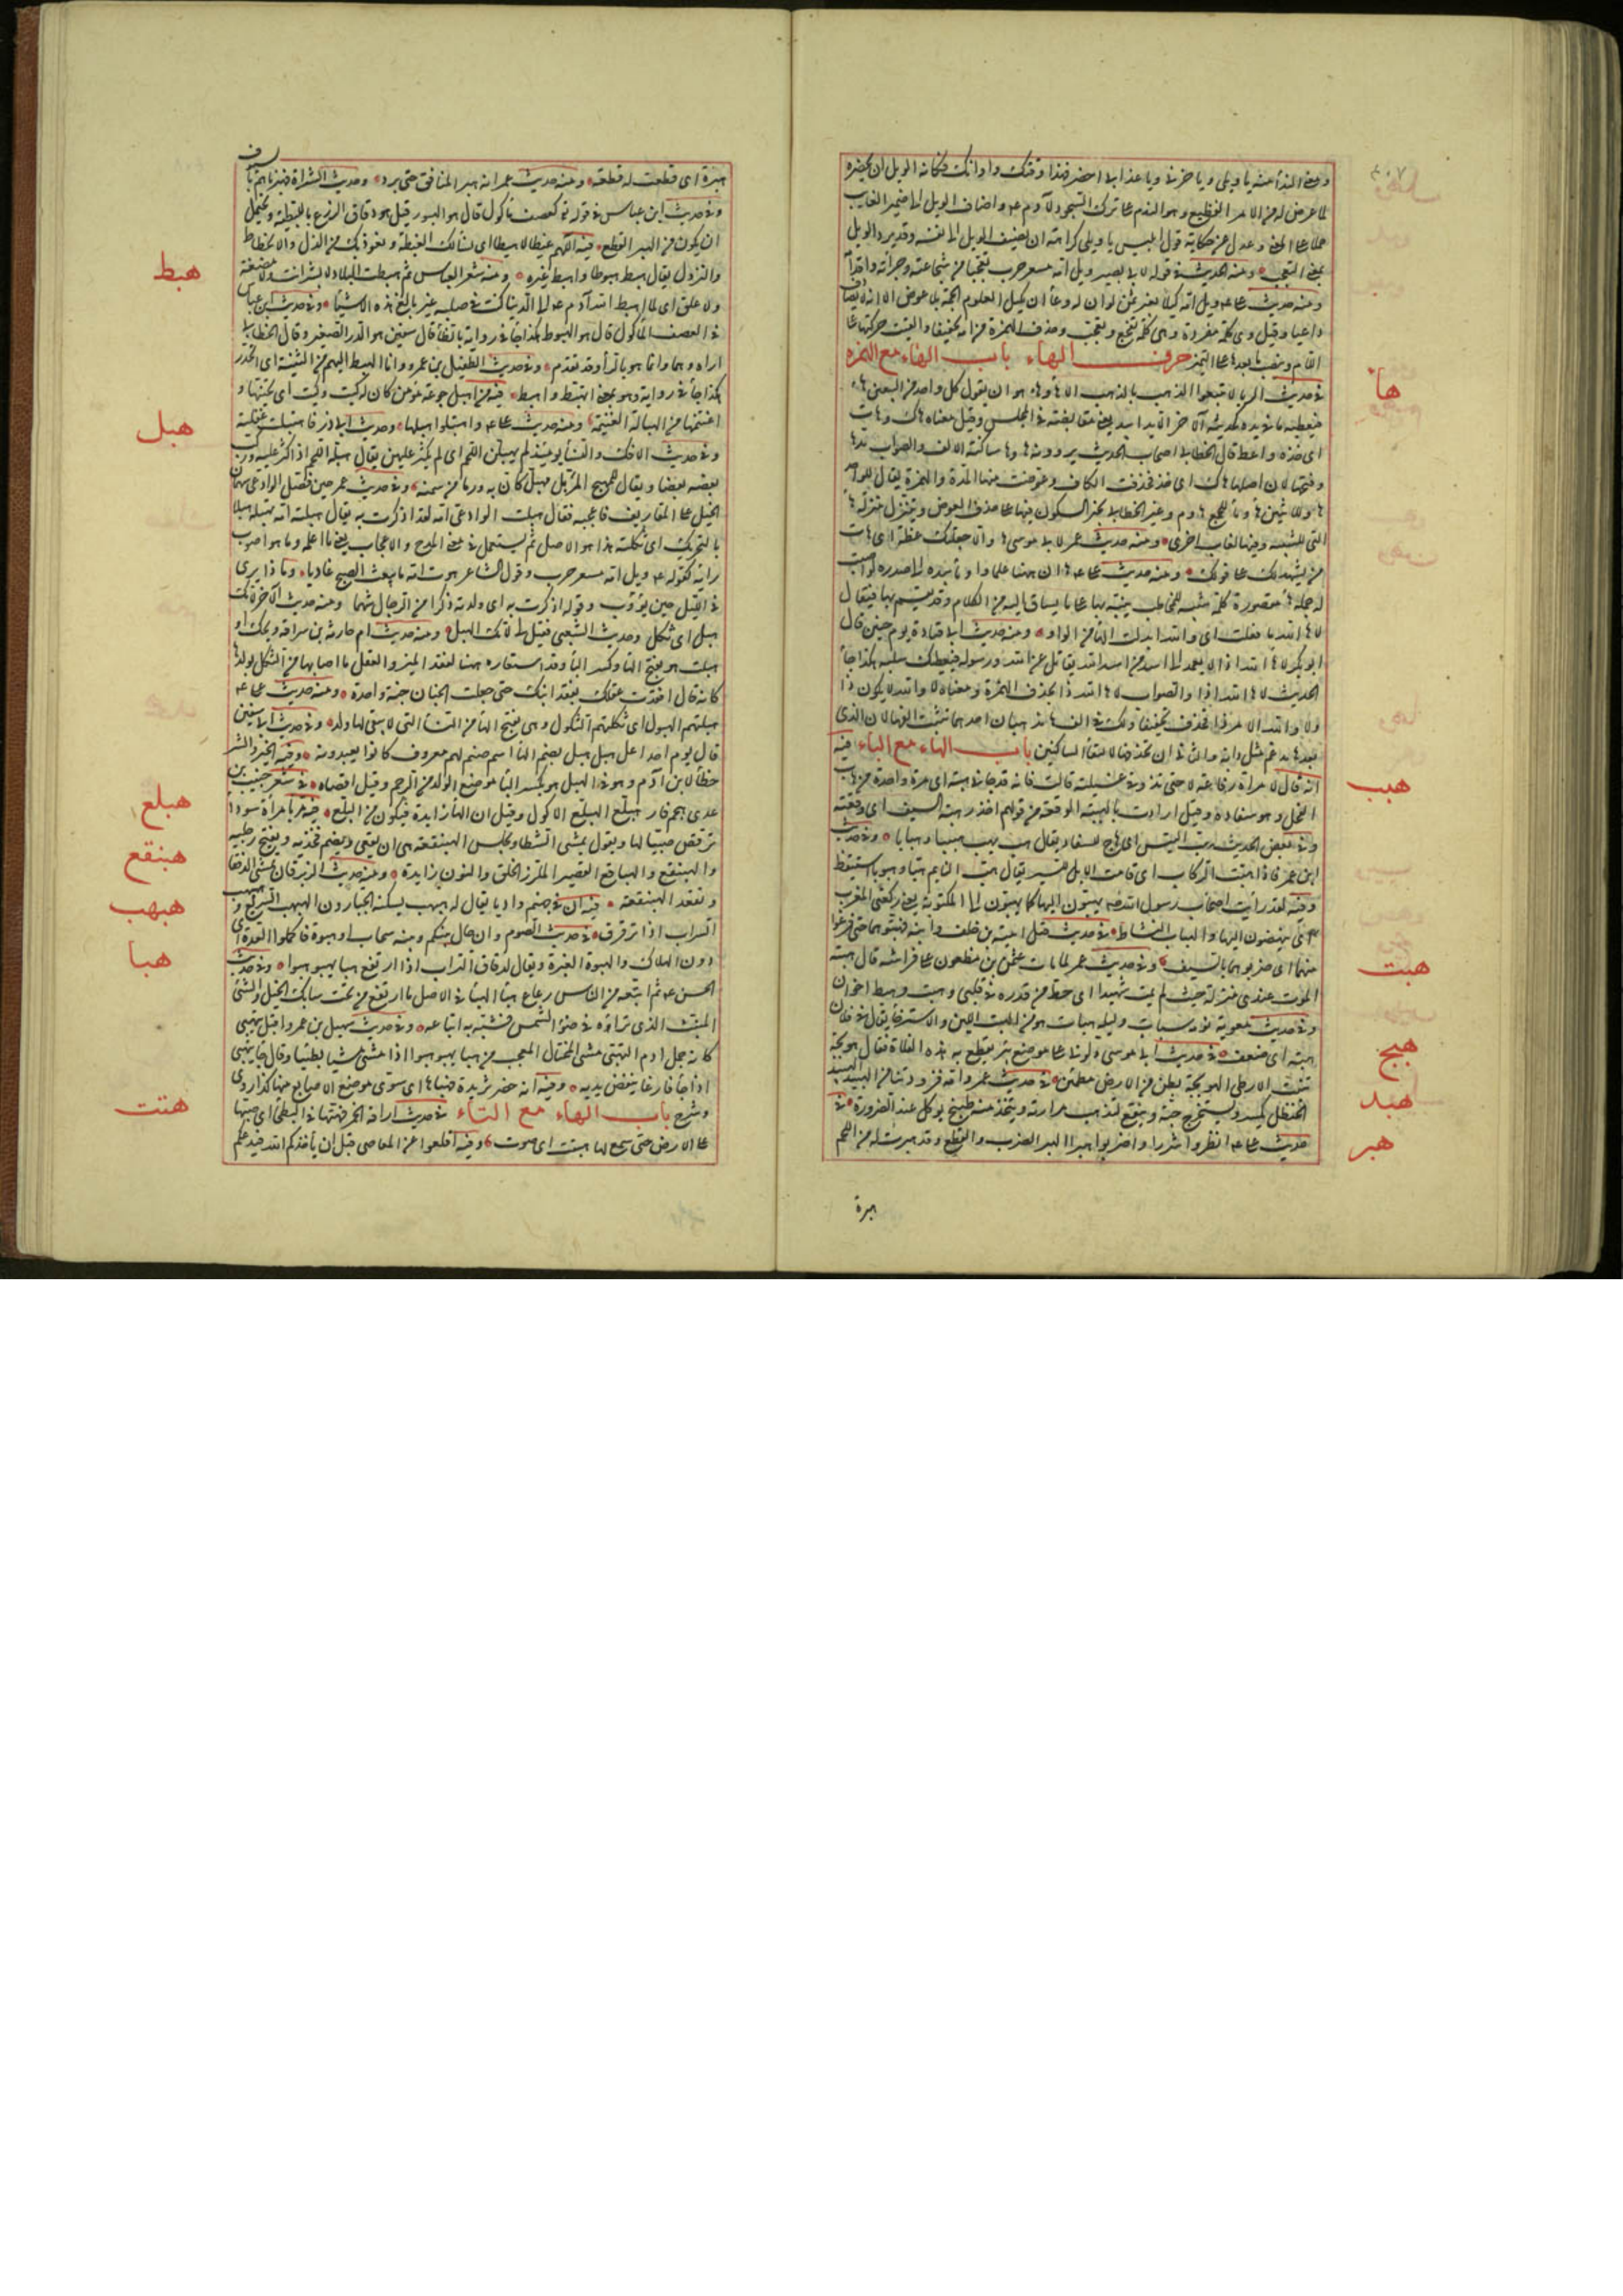 ومعنى الندا منه يا ويلى ويا حزنى ويا عذابى احضر فهذا وقتك واوانك فكانه نادى الويل ان يحضره
لما عرض له من الامر الفظيع وهو الندم على ترك السجود لآدم عم واضاف الويل الى ضمير الغايب
حملا على المعنى وعدل عن حكاية قول ابليس يا ويلى كراهة ان يضيف الويل الى نفسه وقد يرد الويل
بمعنى التعجب ومنه الحديث فى قوله لابى بصير ويل امه مسعر حرب تعجبا من شجاعته وجرأته واقدامه
ومنه حديث على عم ويل امه كيلا بغير ثمن لو ان له وعا اى يكيل العلوم الجمة بلا عوض الا انه لا يصادف
واعيا وقيل وى كلمة مفردة ولامه مفردة وهى كلمة تفجع وتعجب وحذف الهمزة من امه تخفيفا والقيت حركتها على
اللام وينصب ما بعدها على التميز حرف الهاء باب الهاء مع الهمزه
ها
فى حديث الربا لا تبيعوا الذهب بالذهب الا ها وها هو ان يقول كل واحد من البيعين ها
فيعطيه ما فى يده كحديثه الآخر الا يدا بيد يعنى مقابضة فى المجلس وقيل معناه هاك وهات
اى خذ واعط قال الخطابى اصحاب الحديث يروونه ها وها ساكنة الالف والصواب مدها
وفتحها لان اصلها هاك اى خذ فحذفت الكاف وعوضت منها المدة والهمزة يقال للواحد
هاء وللاثنين هاؤما وللجمع هاؤم وغير الخطابى يجيز السكون فيها على حذف العوض وتتنزل منزلة ها
التى للتنبيه وفيها لغات اخرى ومنه حديث عمر لابى موسى ها والا جعلتك عظة اى هات
من يشهد لك على قولك ومنه حديث على عم ها ان ههنا علما واومأ بيده الى صدره لو اصبت
له حملة ها مقصورة كلمة تنبيه للمخاطب ينبه بها على ما يساق اليه من الكلام وقد يقسم بها فيقال
لا ها الله ما فعلت اى والله ابدلت الهاء من الواو ومنه حديث ابى قتادة يوم حنين قال
ابو بكر لا ها الله اذا لا يعمد الى اسد من اسد الله يقاتل عن الله ورسوله فيعطيك سلبه هكذا جاء
الحديث لا ها الله اذا والصواب لا ها الله ذا بحذف الهمزة ومعناه لا والله لا يكون ذا
ولا والله الامر ذا فحذف تخفيفا ولك فى الف ها مذهبان احدهما تثبت الفها لان الذى
بعدها مدغم مثل دابة والثانى ان تحذفها لالتقاء الساكنين باب الهاء مع الباء فيه
هبب
انه قال لامراة رفاعة لا حتى تذوقى عسيلته قالت فانه قد جانى هبة اى مرة واحدة من هباب
الفحل وهو سفاده وقيل ارادت بالهبة الوقعة من قولهم احذر هبة السيف اى وقعته
وفى بعض الحديث هب التيس اى هاج للسفاد يقال هب يهب هبيبا وهبابا وفى حديث
ابن عمر فاذا هبت الركاب اى قامت الابل للسير يقال هب النايم هبا وهبوبا استيقظ
وفيه لقد رأيت اصحاب رسول الله صلعم يهبون اليها كما يهبون الى المكتوبة يعنى ركعتى المغرب
اى ينهضون اليها والهباب النشاط
هبت
فى حديث قتل امية بن خلف وابنه فهبتوهما حتى فرغوا
منهما اى ضربوهما بالسيف وفى حديث عمر لما مات عثمن بن مظعون على فراشه قال هبته
الموت عندى منزلة حيث لم يمت شهيدا اى حط من قدره فى قلبى وهبت وهبط اخوان
وفى حديث معوية نومه سبات وليله هبات هو من الهبت اللين والاسترخا يقال فى فلان
هبته اى ضعف
هبج
فى حديث ابى موسى دلونى على موضع بئر يقطع به هذه الفلاة فقال هوبجة
تنبت الارطى الهوبجة بطن من الارض مطمئن
هبد
فى حديث عمر وامه فزودتنا من الهبيد الهبيد
الحنظل يكسر ويستخرج حبه وينقع لتذهب مرارته ويتخذ منه طبيخ يوكل عند الضرورة
هبر
فى
حديث على عم انظروا شزرا واضربوا هبرا الهبر الضرب والقطع وقد هبرت له من اللحم
هبرة
هبرة اى قطعت له قطعة ومنه حديث عمر انه هبر المنافق حتى برد وحديث الشراة فهبرناهم بالسيوف
وفى حديث ابن عباس فى قوله تع كعصف ماكول قال هو الهبور قيل هو دقاق الزرع بالنبطية ويحتمل
ان يكون من الهبر القطع
هبط
فيه اللهم غبطا لا هبطا اى نسالك الغبطة ونعوذ بك من الذل والانحطاط
والنزول يقال هبط هبوطا واهبط غيره ومنه شعر العباس ثم هبطت البلاد لا بشر انت ولا مضغة
ولا علق اى لما اهبط الله آدم عم الى الدنيا كنت فى صلبه غير بالغ هذه الاشيا وفى حديث ابن عباس
فى العصف الماكول قال هو الهبوط هكذا جا فى رواية بالطا قال سفين هو الذر الصغير وقال الخطابى
اراه وهما وانما هو بالرا وقد تقدم وفى حديث الطفيل بن عمرو وانا اتهبط اليهم من الثنية اى انحدر
هكذا جا فى رواية وهو بمعنى انهبط واهبط
هبل
فيه من اهتبل جوعة مؤمن كان له كيت وكيت اى تحينها و
اغتنمها من الهبالة الغنيمة ومنه حديث على عم واهتبلوا هبلها وحديث ابى ذر فاهتبلت غفلته
وفى حديث الافك والنسا يومئذ لم يهبلهن اللحم اى لم يكثر عليهن يقال هبله اللحم اذا كثر عليه وركب
بعضه بعضا ويقال للمهيج المربل مهبل كان به ورما من سمنه وفى حديث عمر حين فضل الوادعى سهمان
الخيل على المقاريف فاعجبه فقال هبلت الوادعى امه لقد اذكرت به يقال هبلته امه تهبله هبلا
بالتحريك اى ثكلته هذا هو الاصل ثم يستعمل فى معنى المدح والاعجاب يعنى ما اعلمه وما هو اصوب
رايه كقوله عم ويل امه مسعر حرب وقول الشاعر هوت امه ما يبعث الصبح غاديا وماذا يرى
فى الليل حين يؤوب وقوله اذكرت به اى ولدته ذكرا من الرجال شهما ومنه حديث الآخر لامك
هبل اى ثكل وحديث الشعبى فقيل لى لامك الهبل ومنه حديث ام حارثة بن سراقة ويحك او
هبلت هو بفتح الها وكسر البا وقد استعاره ههنا لفقد الميز والعقل مما اصابها من الثكل بولدها
كانه قال افقدت عقلك بفقد ابنك حتى جعلت الجنان جنة واحدة ومنه حديث على عم
هبلتهم الهبول اى ثكلتهم الثكول وهى بفتح الها من النسا التى لا يبقى لها ولد وفى حديث ابى سفين
قال يوم احد اعل هبل هبل بضم الها اسم صنم لهم معروف كانوا يعبدونه وفيه الخير والشر
خطا لابن آدم وهو فى المهبل هو بكسر البا موضع الولد من الرحم وقيل اقصاه
هبلع
فى شعر خبيب بن
عدى جحم نار هبلع الهبلع الاكول وقيل ان الها زايدة فيكون من البلع
هبنقع
فيه مر بامراة سودا
ترقص صبيا لها وتقول يمشى الثطا ويجلس الهبنقعة هى ان يقعى ويضم فخذيه ويفتح رجليه
والهبنقع والهباقع القصير الملزز الخلق والنون زايدة ومنه حديث الزبرقان تمشى الدفقا
وتقعد الهبنقعة
هبهب
فيه ان فى جهنم واديا يقال له هبهب يسكنه الجبارون الهبهب السريع وهبهب
السراب اذا ترقرق
هبا
فى حديث الصوم وان حال بينكم وبينه سحاب او هبوة فاكملوا العدة اى
دون الهلال والهبوة الغبرة ويقال لدقاق التراب اذا ارتفع هبا يهبو هبوا وفى حديث
الحسن عم ثم اتبعه من الناس رعاع هباء الهبا فى الاصل ما ارتفع من تحت سنابك الخيل والشى
المنبث الذى تراه فى ضوء الشمس فشبه به اتباعه وفى حديث سهيل بن عمرو اقبل يتهبى
كانه جمل آدم التهبى مشى المختال المعجب من هبا يهبو هبوا اذا مشى مشيا بطيئا وقال جا يتهبى
اذا جا فارغا ينفض يديه وفيه انه حضر ثريدة فهباها اى سوى موضع الاصابع منها كذا روى
وشرح باب الهاء مع التاء
هتت
فى حديث اراقة الخمر فهتها فى البطحا اى صبها
على الارض حتى سمع لها هتيت اى صوت وفيه اقلعوا عن المعاصى قبل ان ياخذكم الله فيدعكم